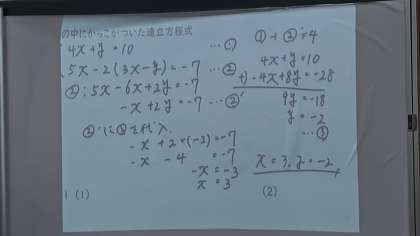 の中にかっこがついた連立方程式
4x+y=10 …①
5x-2(3x-y)=-7 …②
②:5x-6x+2y=-7
-x+2y=-7 …②'
②'に③を代入
-x+2×(-2)=-7
-x -4 =-7
-x=-3
x=3
1 (1)
①+②'×4
4x+y=10
+)-4x+8y=-28
9y=-18
y=-2
…③
x=3, y=-2
(2)